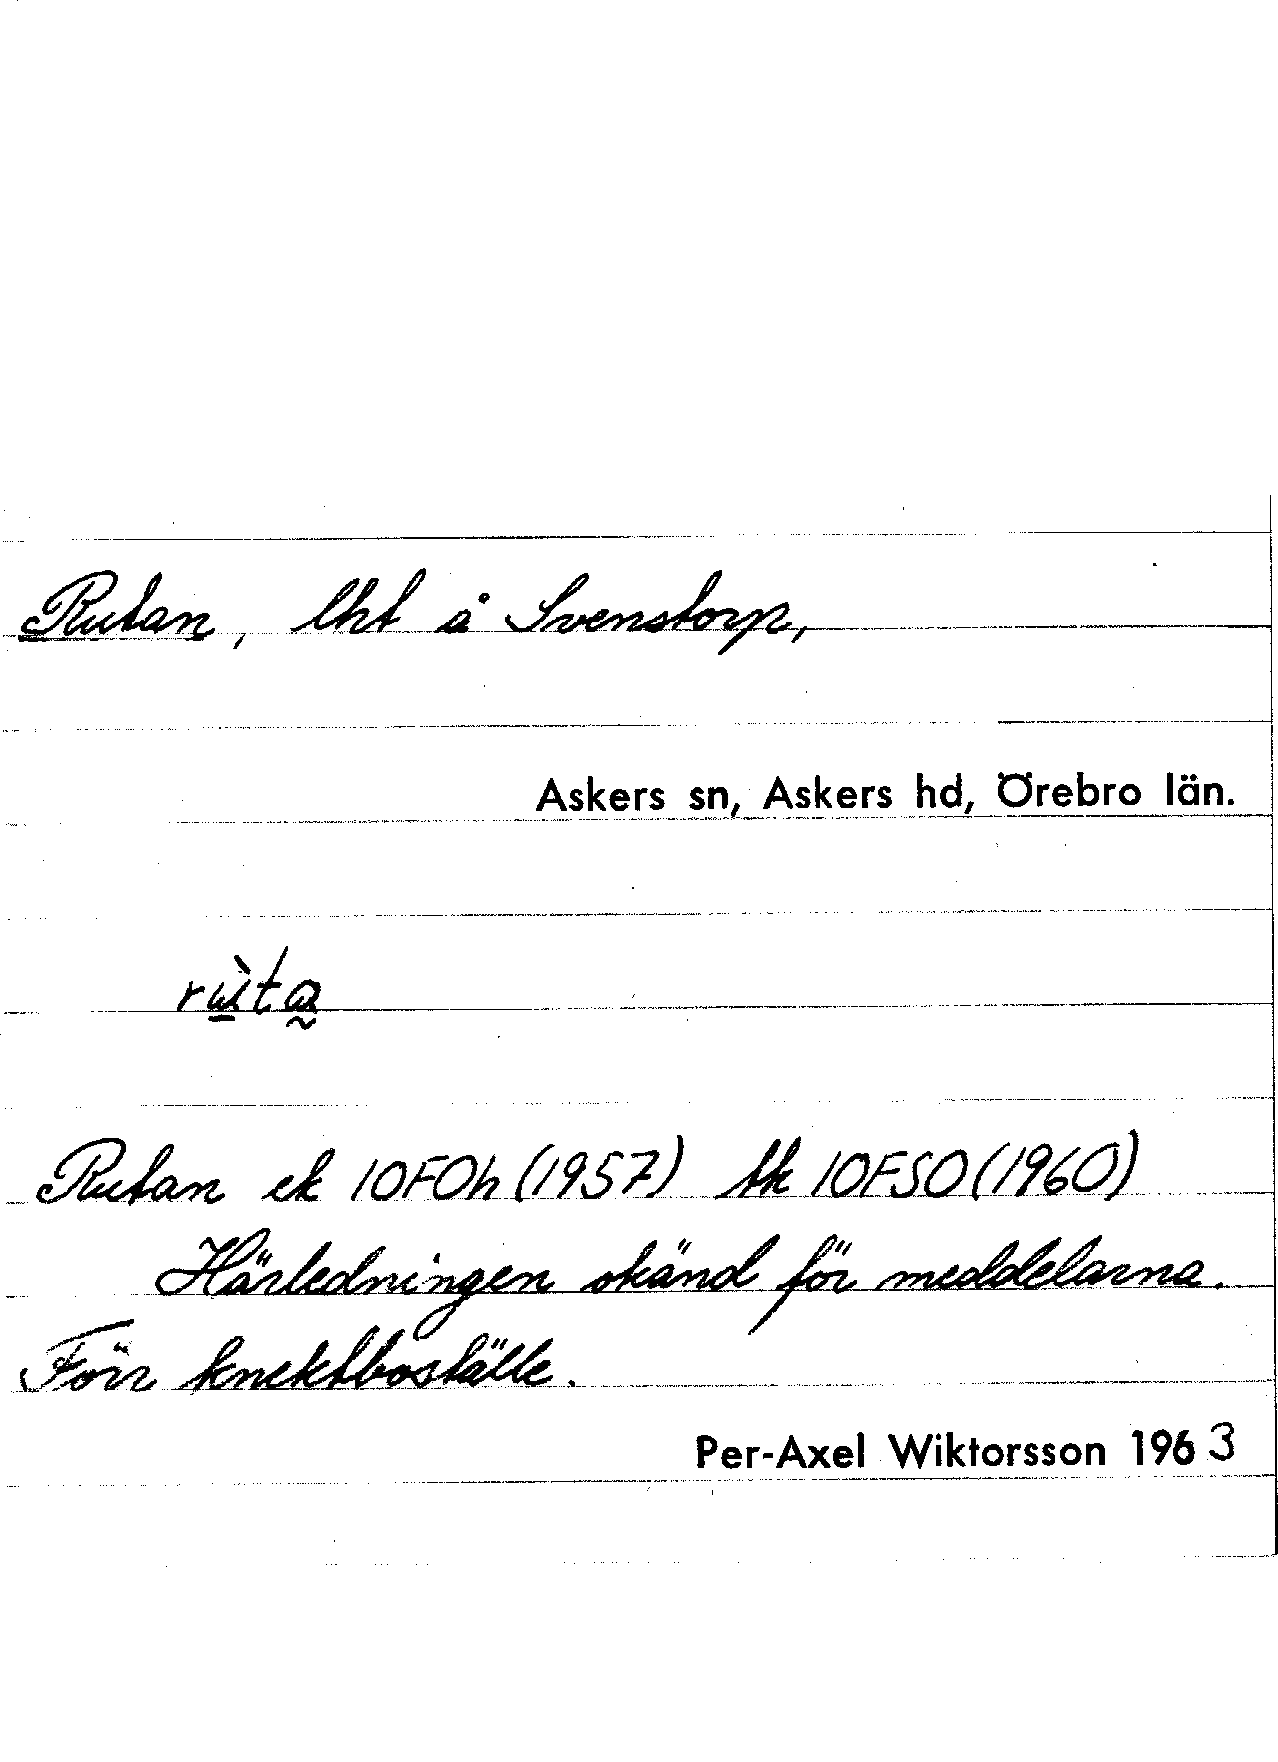 Rutan, lht å Svenstorp,
Askers sn, Askers hd, Örebro län.
rùta
Rutan ek 10F0h (1957) tk 10FSO (1960)
Härledningen okänd för meddelarna.
Förr knektboställe.
Per-Axel Wiktorsson 1963